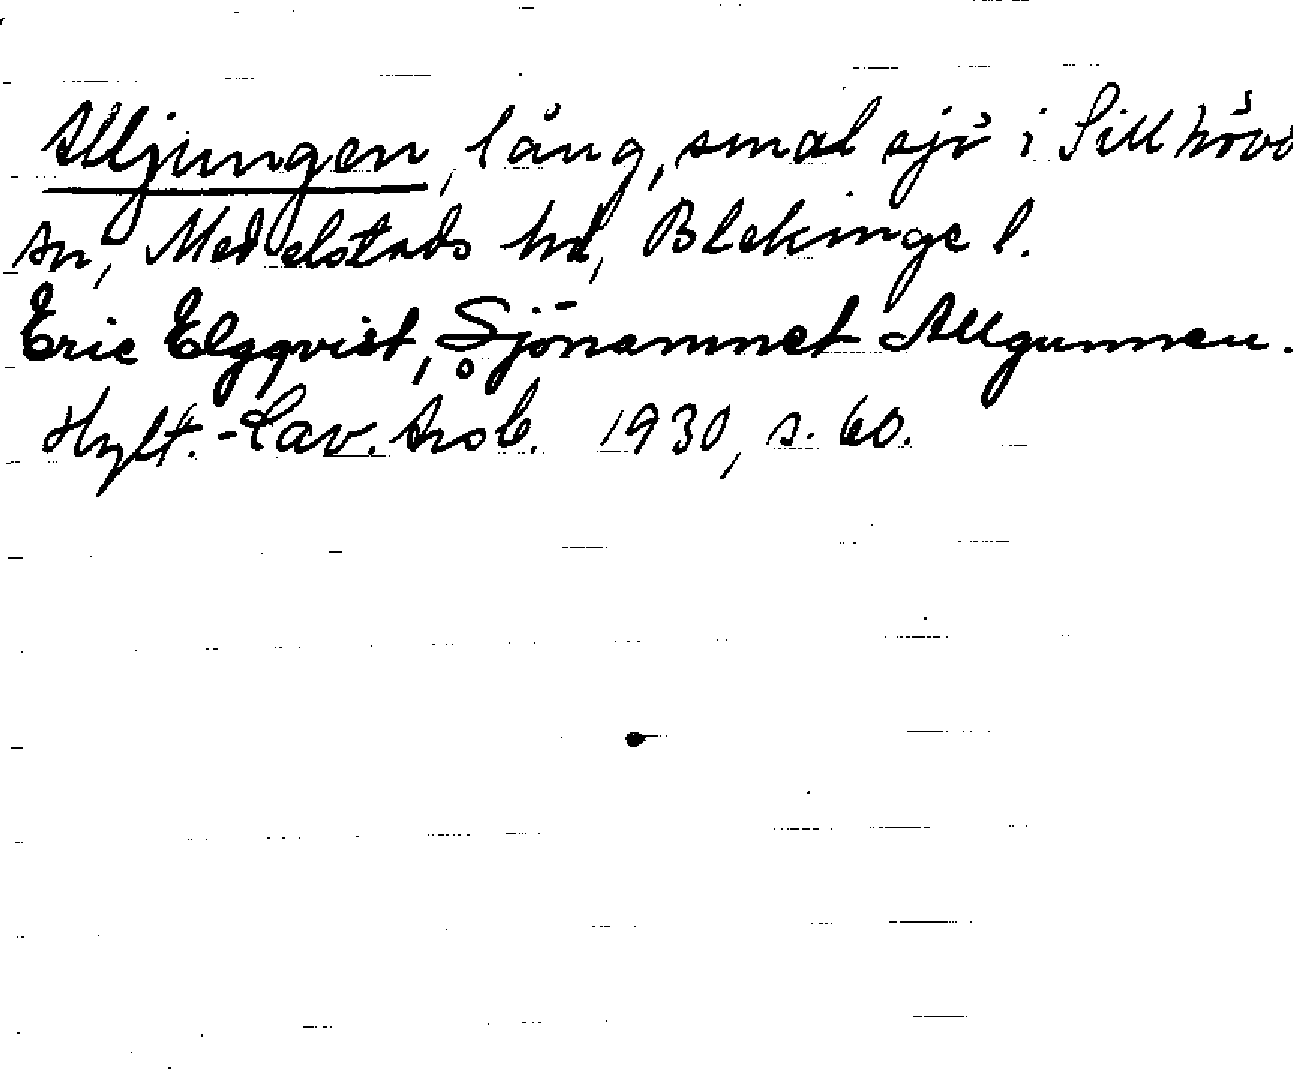 Alljungen, lång, smal sjö i Sillhövd
sn, Medelstads hd, Blekinge l.
Eric Elgqvist, Sjönamnet Allgunnen.
Hylt.-Cav. årsb. 1930, s. 60.